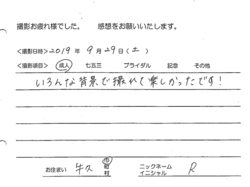 撮影お疲れ様でした。 感想をお願いいたします。
<撮影日時> 2019年 9月 29日 (土)
<撮影項目> 成人 七五三 ブライダル 記念 その他
いろんな背景で撮れて楽しかったです!
お住まい 牛久 市 町 村 ニックネーム イニシャル R